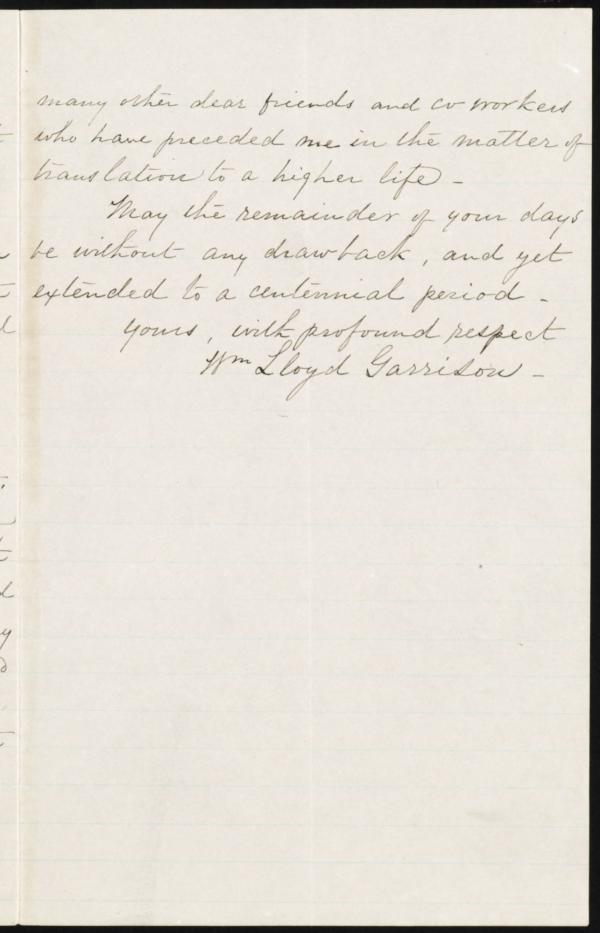 many other dear friends and co workers
who have preceded me in the matter of
translation to a higher life -
May the remainder of your days
be without any drawback, and yet
extended to a centennial period -
yours, with profound respect
Wm Lloyd Garrison -